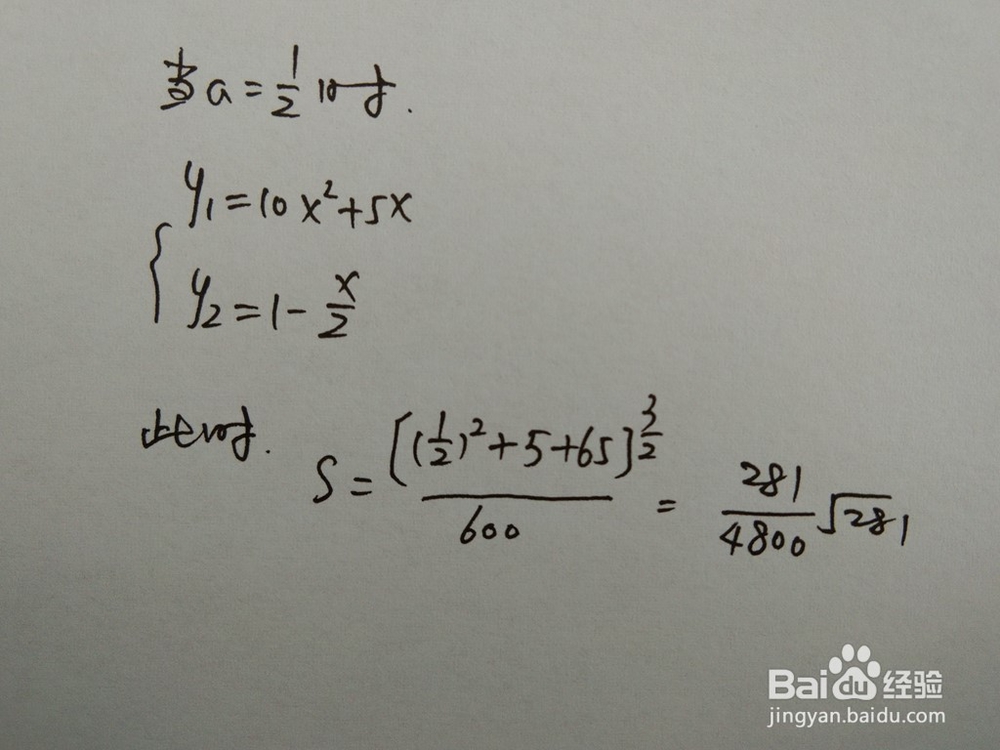 当a=1/2时.
y₁=10x²+5x
y₂=1-x/2
此时.
S=[(1/2)²+5+65]^(3/2)/600=281/4800√281
Baidu经验
jingyan.baidu.com